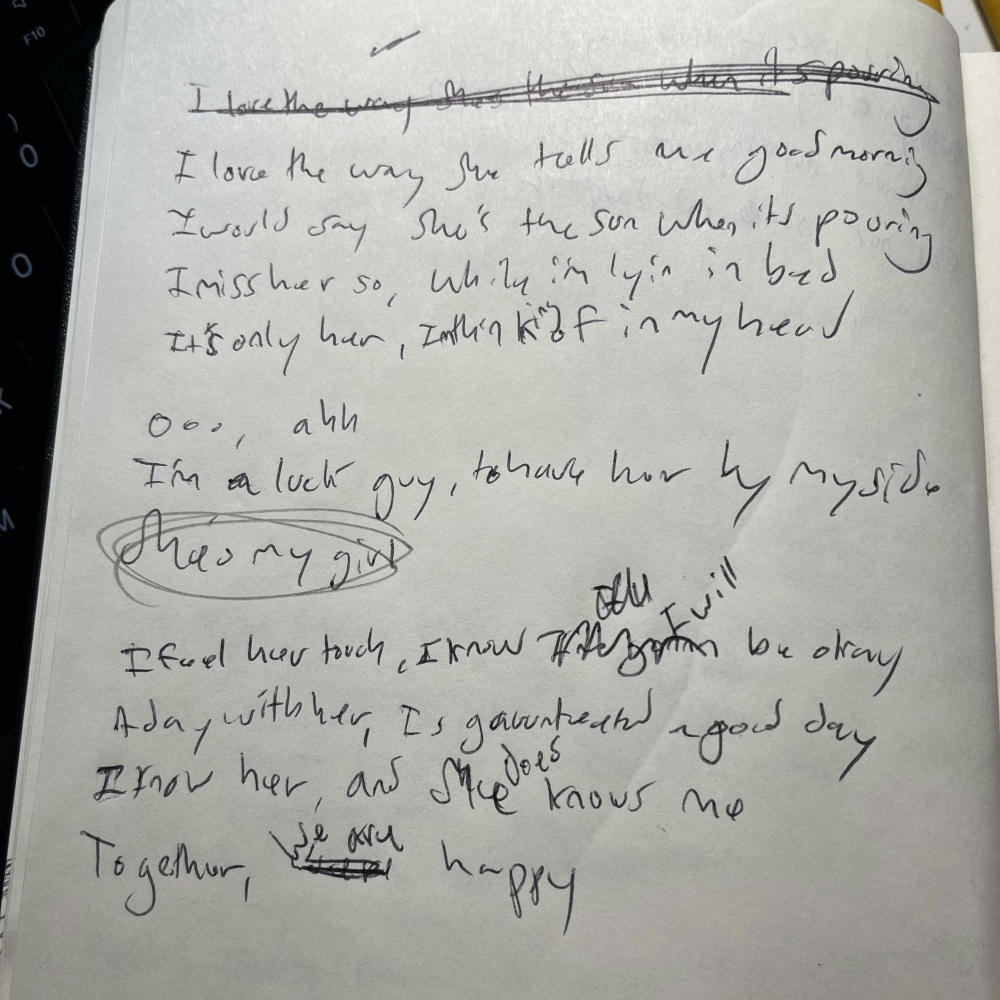 I love the way she's the sun when it's pouring
I love the way she tells me good morning
I would say she's the sun when its pouring
I miss her so, while i'm lyin in bed
It's only her, Im thinking of in my head
ooo, ahh
I'm a luck guy, to have her by my side
She's my girl
I will
I feel her touch, I know be okay
A day with her, Is gaurnteed a good day
does
I know her, and she knows me
we are
Together, happy
F10